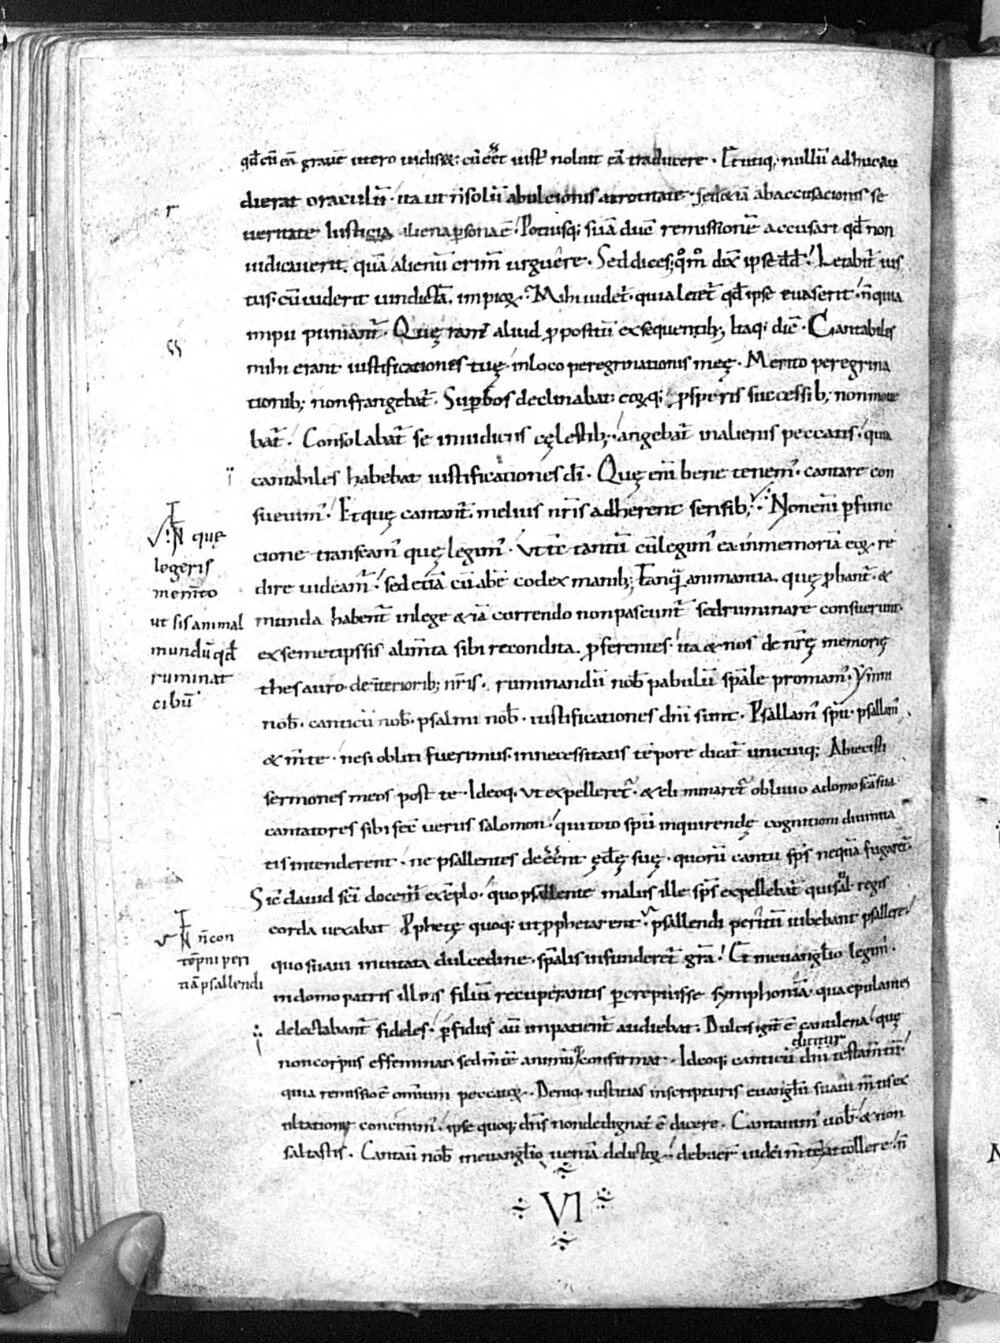 qd̄ cū eā grauē utero uidisset: cū eēt iust' noluit eā traducere. Et utiq; nullū adhuc au
dierat oraculū. ita ut n̄ solū ab ulcionis atrocitate. sed etiā ab accusacionis se
ueritate iusticia aliena persona ē. Potiusq; suā
uidicauerit. quā alienū crim̄ urguere. Sed dices; qm̊o dix̄ ipse dd̄! Letabit̄ ius
tus. cū uiderit uindictā. impioꝝ. Mihi uidet̄. quia letet̄ qd̄ ipse euaserit. n̄ quia
impii puniant̄. Quę
mihi erant iustificationes tuę. in loco peregrinationis meę. Merito peregrina
tionib; non frangebat̄. Suꝑbos declinabat. eoꝝq; ꝓsperis successib; non moue
bat̄. Consolabat̄ se in iudiciis cęlestib; angebat̄ in alienis peccatis. quia
cantabiles habebat iustificationes di. Quę eni bene tenem'. cantare con
sueuim'. Et quę cantant̄. melius nr̄is adherent sensib; Non eni ꝑfunc
cione transeam' quę legim'. Ut tc̄ tantū cū legim' ea. in memoriā eoꝝ re
dire uideam'. sed etiā cū abē codex manib; Tanquā animantia. quę ꝓbant̄. &
munda habent̄ in lege & iā currendo non pascunt̄ sed ruminare consuerunt.
ex semetipsis alim̄ta sibi recondita. ꝓferentes. ita & nos de nr̄ę memorię
thesauro. de interiorib; nr̄is. ruminandū nob̄ pabulū sp̄ale promam'. Ymni
nob̄. canticū nob̄. psalmi nob̄. iustificationes dn̄i sunt. Psallam' sp̄u. psallam'
& m̄te. ne si obliti fuerimus. in necessitatis tēpore dicat̄ unicuiq; Abiecisti
sermones meos post te. Ideoq. ut expelleret̄. & eliminaret̄ obliuio a domo sc̄a sua
cantatores sibi fec̄ uerus salomon. qui toto sp̄u inquirendę cognitioni diuinita
tis intenderent. ne psallentes deēēnt ędę suę. quorū cantu sp̄s nequā fugaret̄
Sic̄ dauid sc̄i docem̄ exēplo. quo psallente malus ille sp̄s expellebat̄ qui saul regis
corda uexabat Ꝓphetę quoq; ut ꝓphetarent. psallendi peritū iubebant psallere!
quo suaui inuitata dulcedine. sp̄alis infunderet̄ gr̄a! Et in euangl̄io legim'.
in domo patris illius filiū recuperantis percrepuisse symphoniā. qua epulantes
delectabant̄ fideles. ꝑfidus aū impatient̄ audiebat. Dulcis igit̄ ē cantilena. quę
non corpus effeminat. sed m̄tē animūq; confirmat. Ideoq; canticū dicitur dn̄i testam̄tū
quia remissio ē omnium peccatoꝝ. Deniq. iusticias in scripturis euangl̄ii suaui m̄tis ex
ultatione concinim'. ipse quoq; dn̄s non dedignat' ē dicere. Cantauim' uob̄. & non
saltastis. Cantau nob̄ in euangl̄io ueniā delictoꝝ. debuer̄ iudei m̄tē attollere. n̄
VI
N quę
legeris
mem̄to
ut sis animal
mundū qd̄
ruminat
cibū
N n̄ con
tēpni peri
tiā psallendi